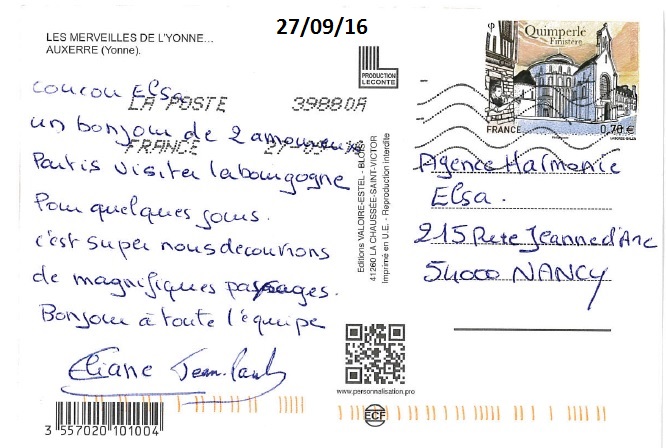 27/09/16
LES MERVEILLES DE L'YONNE...
AUXERRE (Yonne).
PRODUCTION
LECONTE
Quimperlé
Finistère
FRANCE
0,70 €
coucou Elsa
LA POSTE 39880A
un bonjour de 2 amoureux
FRANCE
Partis visiter la bourgogne
Pour quelques jours.
c'est super nous decouvrons
de magnifiques paysages.
Bonjour à toute l'équipe
Eliane Jean-Paul
Editions VALOIRE-ESTEL - BLOIS
41260 LA CHAUSSÉE-SAINT-VICTOR
Imprimé en U.E. - Reproduction interdite
Agence Harmonie
Elsa.
215 Rue Jeanne d'Arc
54000 NANCY
www.personnalisation.pro
ECF
3 557020 101004